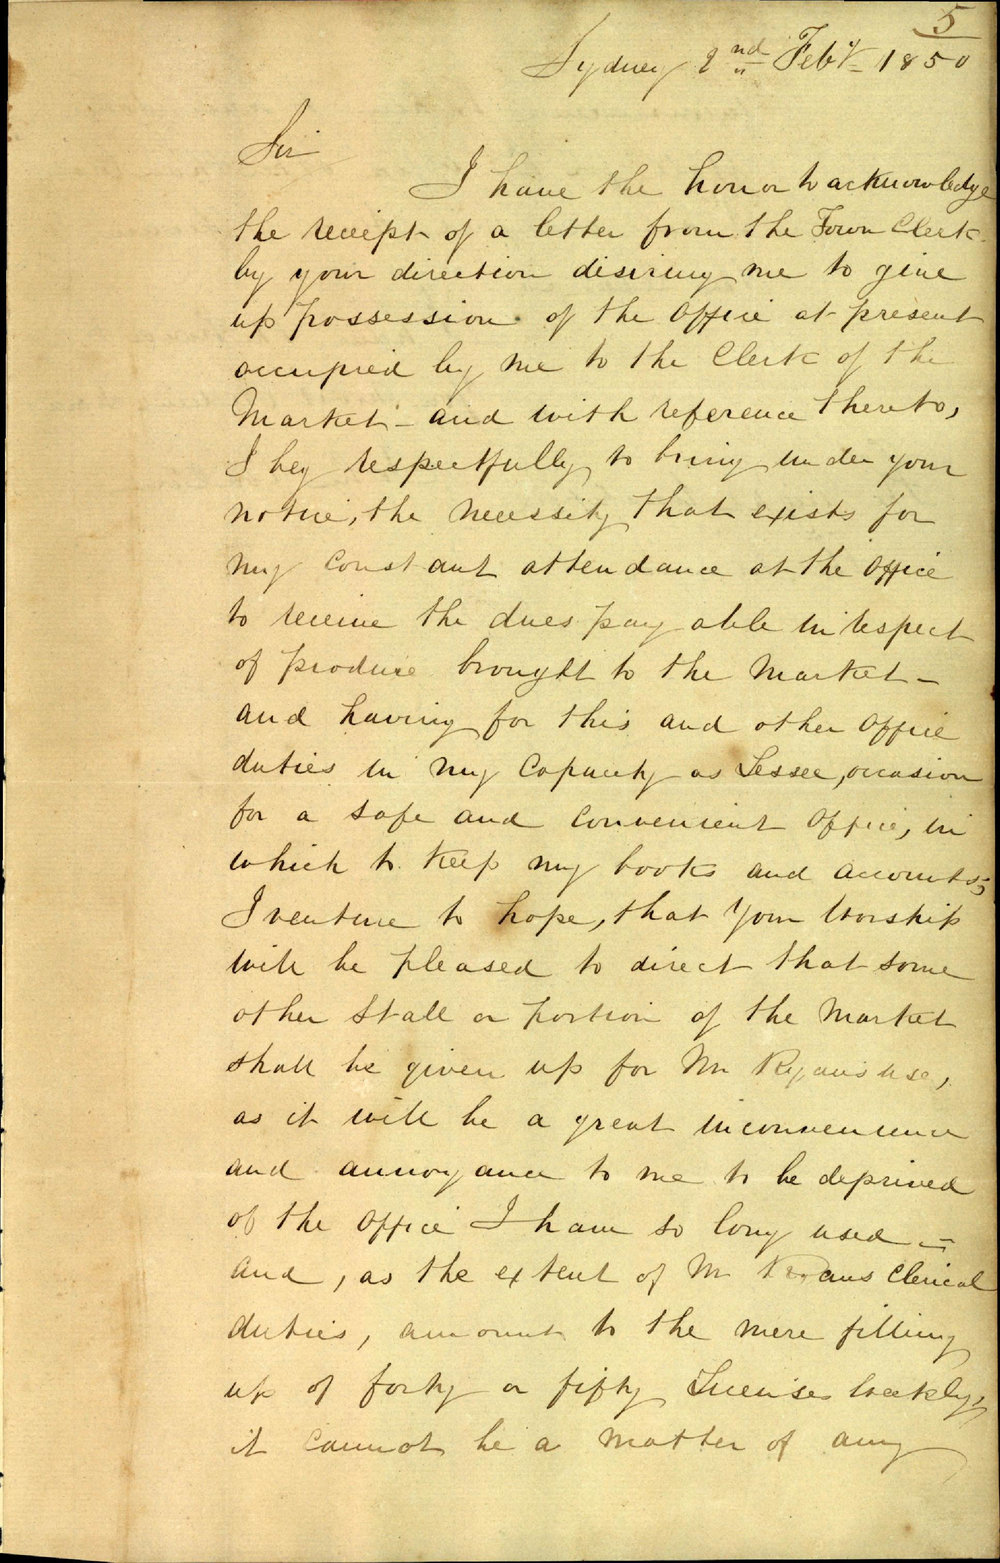 5
Sydney 2nd Feby 1850
Sir
I have the honor to acknowledge
the receipt of a letter from the Town Clerk
by your direction desiring me to give
up possession of the Office at present
occupied by me to the Clerk of the
Market - and with reference thereto,
I beg respectfully to bring under your
notice, the necessity that exists for
my constant attendance at the Office
to receive the dues payable in respect
of produce brought to the Market -
and having for this and other Office
duties in my Capacity as Lessee, occasion
for a safe and convenient Office, in
which to keep my books and accounts;
I venture to hope, that Your Worship
will be pleased to direct that some
other Stall or portion of the Market
shall be given up for Mr Ryans use,
as it will be a great inconvenience
and annoyance to me to be deprived
of the Office I have so long used -
and, as the extent of Mr Ryans Clerical
duties, amount to the mere filling
up of forty or fifty Licenses Weekly,
it cannot be a matter of any